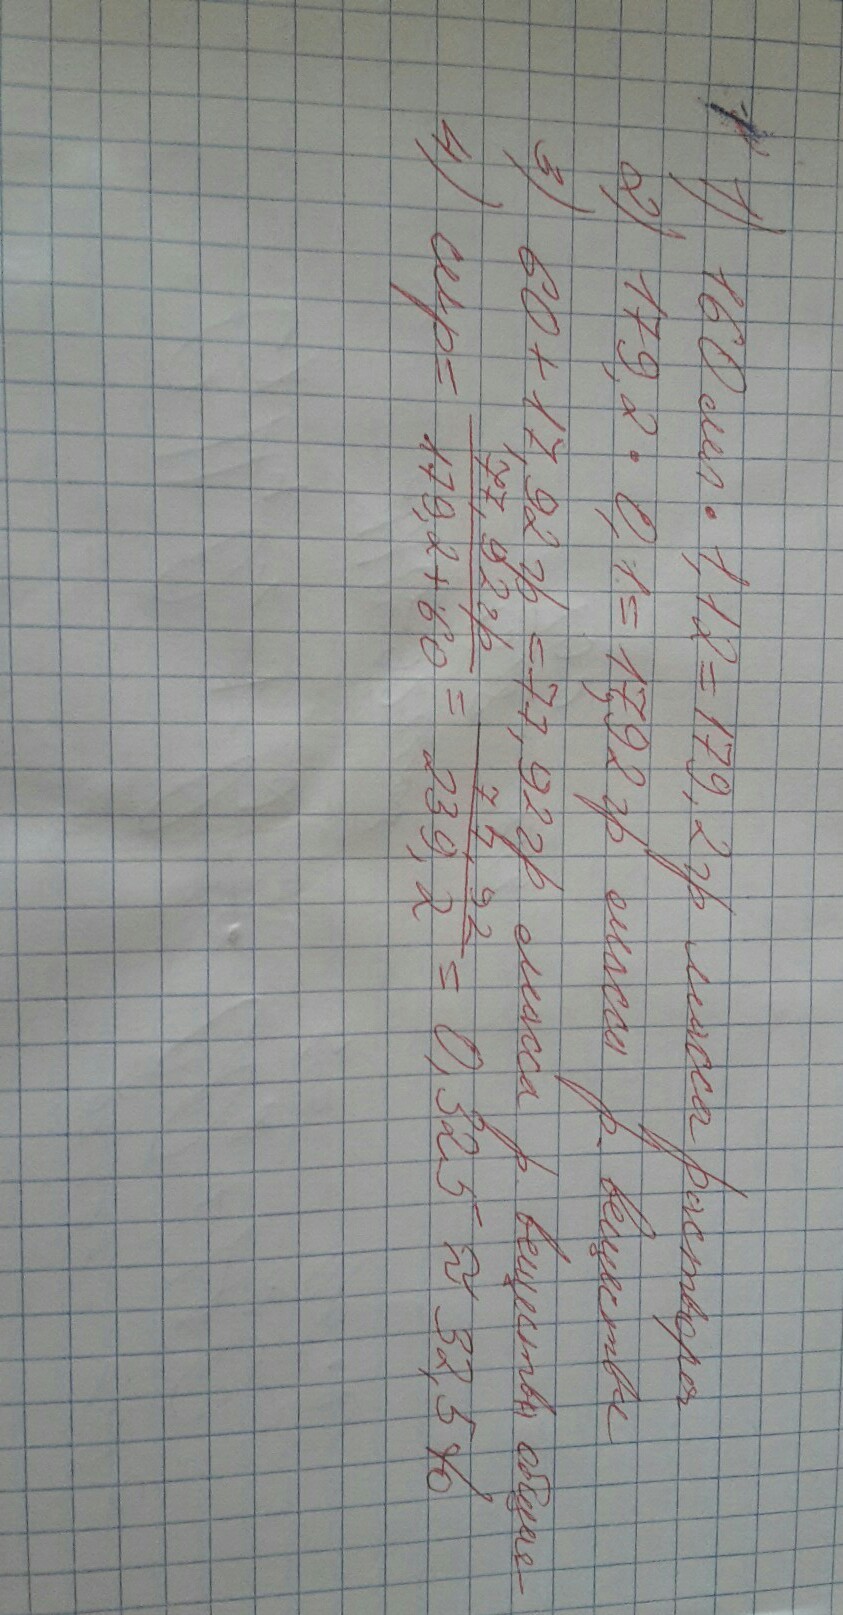 1) 160 мл · 1,12 = 179,2 гр масса раствора
2) 179,2 · 0,1 = 17,92 гр масса р. вещества
3) 60 + 17,92 гр = 77,92 гр масса р вещества общая
4) = 77,92 гр / 179,2 + 60 = 77,92 / 239,2 = 0,325 ≈ 32,5%